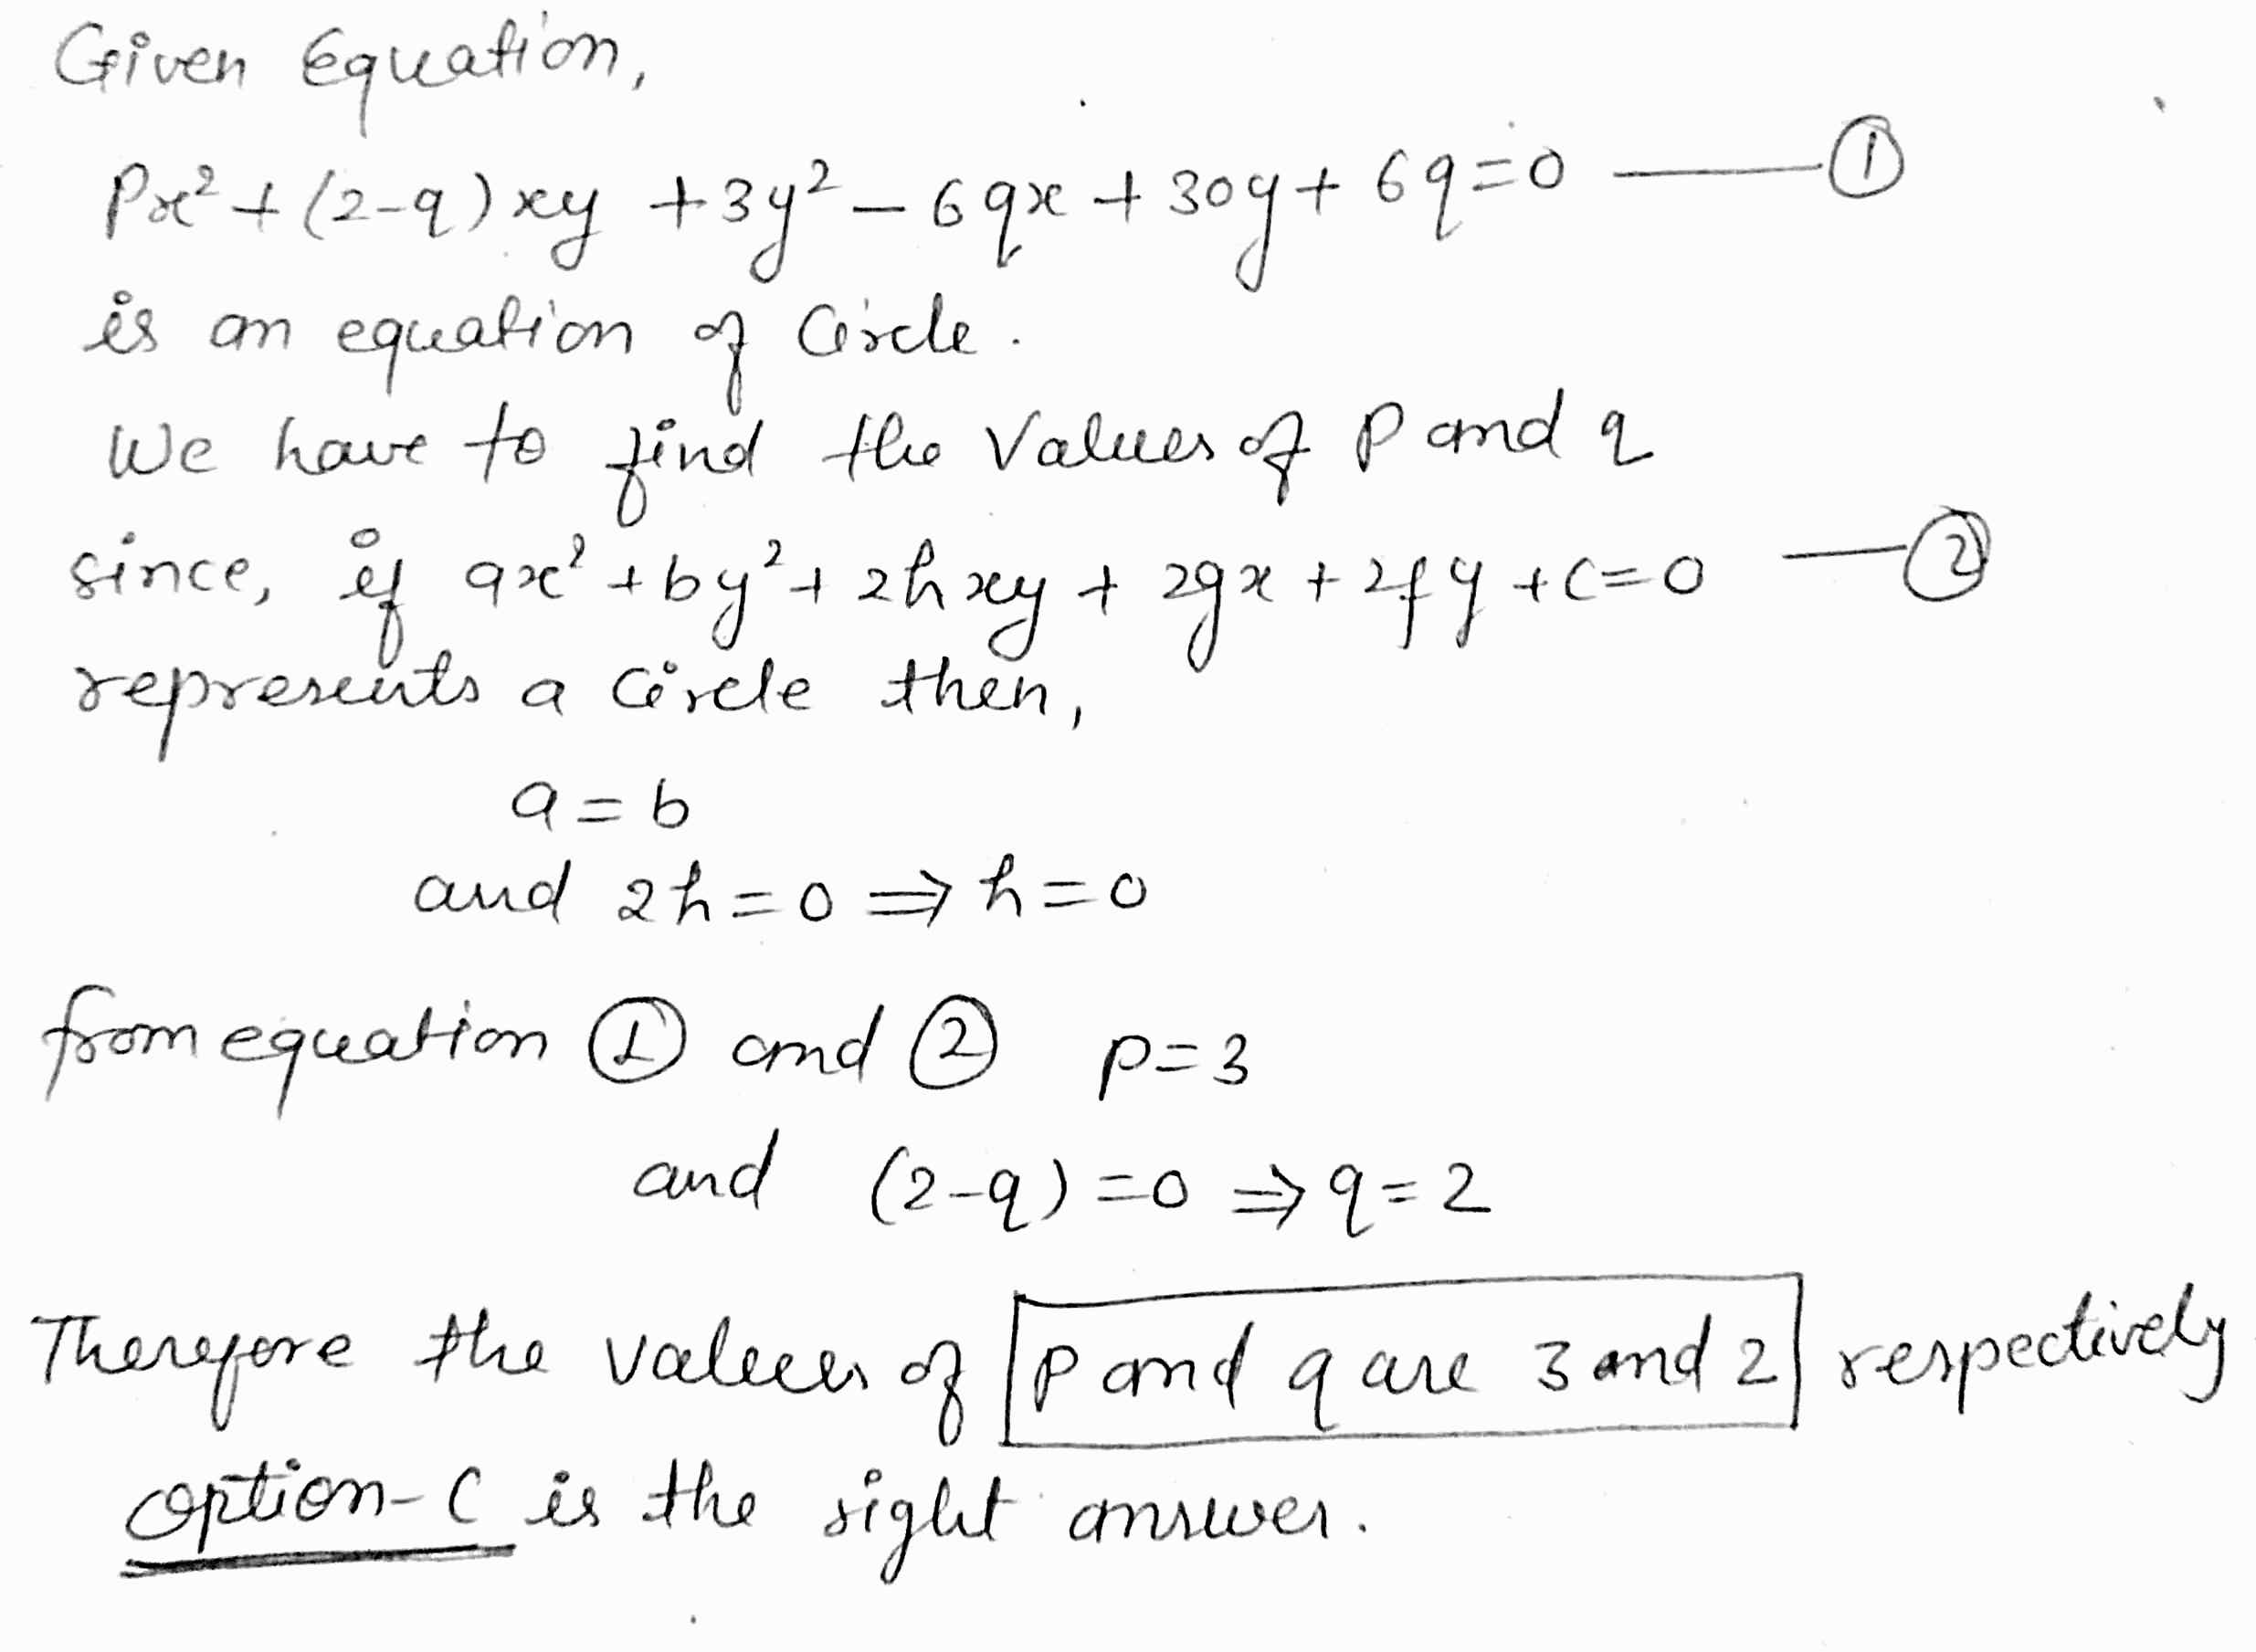 Given Equation,
Px² + (2-q) xy + 3y² - 6qx + 30y + 6q = 0 —— ①
is an equation of Circle.
We have to find the Values of P and q
since, if ax² + by² + 2hxy + 2gx + 2fy + c = 0 — ②
represents a circle then,
a = b
and 2h = 0 ⇒ h = 0
from equation ① and ② p = 3
and (2-q) = 0 ⇒ q = 2
Therefore the values of P and q are 3 and 2 respectively
option-C is the right answer.